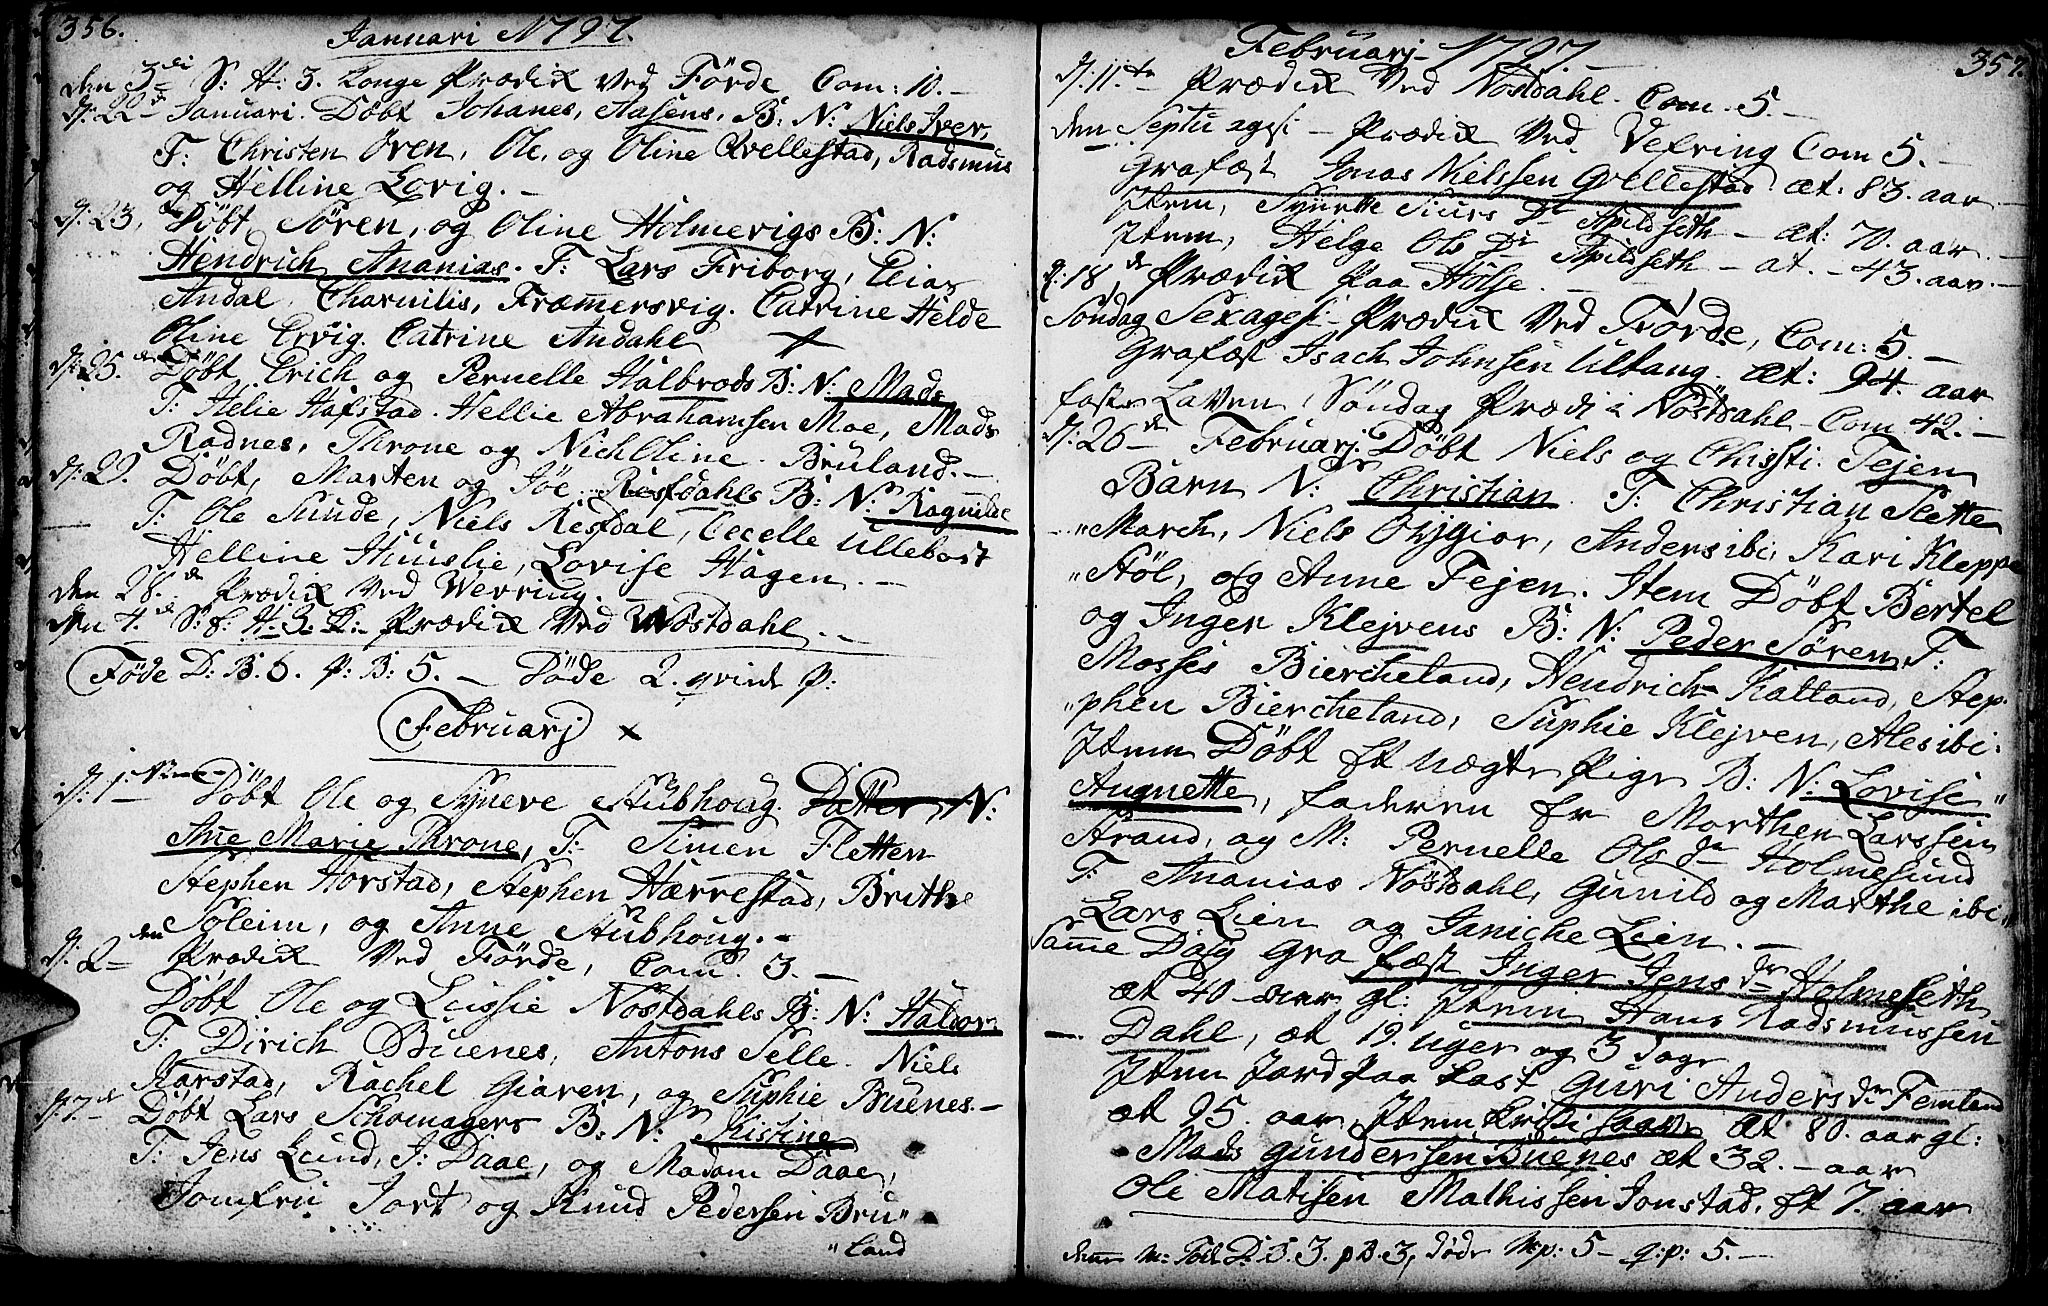 356.
Januari 1797.
den 3di S: H: 3. Konge Prædik Ved Förde Com: 10.
d: 22de Januari. Döbt Johanes, Aasens, B: N: Niels Iver,
T: Christen Ören, Ole, og Oline Qvellestad, Radsmus
og Helline Lovig.
d: 23, Döbt Sören, og Oline Holmevigs B: N:
Hendrich Ananias. T: Lars Friborg, Elias
Andal, Charnilis, Fræmersvig. Catrine Helde
Oline Ervig. Catrine Andahl
d: 25. de Döbt Erich og Pernelle Halbrods B: N: Mads
T: Helie Hafstad. Hellie Abrahamsen Moe, Mads
Radnes, Throne og Nichline Bruland.
d: 29. Döbt, Marten og Joe Resfdahls B: N: Ragnilde
T: Ole Sunde, Niels Resfdal, Cecelle Ullebost
Helline Huuslie, Lovise Hagen.
den 28. de Prædik Ved Wevring.
den 4. de S: f: H. 3. K: Prædik Ved Nöstdahl.
Föde D: B. 6. P: B: 5. Döde 2. qvinde P:
Februarj
d: 1 Döbt Ole og Syneve Aubhoug Datter N:
Ane Marie Throne, T: Simen Fletten
Stephen Horstad, Stephen Hærrestad, Brithe
Soleim, og Anne Aubhoug.
d: 2den Prædik Ved Förde, Com. 3.
Döbt Ole og Lussie Nöstdahls B: N: Haldor
T: Dirich Buenes, Antons Selle. Niels
Karstad, Rachel Giaren, og Suphie Buenes.
d. 7de Döbt Lars Schomagers B: N: Kistine
T: Jens Lund, J: Daae, og Madam Daae,
Jomfru Jort og Knud Pedersen Bru
land
Februarj 1797
357.
d: 11.te Prædik Ved Nöstdahl. Com. 5.
den Septuagesi Prædik Ved Vefring Com 5.
Grafæst Jonas Nielssen Qvellestad æt: 83. aar
Item, Synette Siurs Dr Apildseth æt: 70. aar
Item, Helge Ols Dr Apildseth at. 43. aar.
d: 18 de Prædik paa Hölse.
Söndag Sexagesi Prædik Ved Förde, Com: 5.
Grafæst Isach Johnsen Ultang. æt: 94. aar
faste Laven Söndag Prædi i Nöstdahl Com 42.
d: 26 de Februarj. Döbt Niels og Chissti. Tejen
Barn N: Christian. T: Christian Slette
March, Niels Ovygior, Anders ibi, Kari Kleppe
Stöl, og Anne Tejen. Item Döbt Bertel
og Inger Klejvens B: N: Peder Sören, T:
Mosses Biercheland, Hendrich Kalland, Step
phen Biercheland, Suphie Klejven, Ales ibi.
Item Döbt Et uægte Pige B: N: Lovise
Augnette, faderen er Morthen Larssen
Strand, og M: Pernelle Ols Dr Holmesund
T: Ananias Nöstdahl, Gunild og Marthe ibi
Lars Lien og Janiche Lien.
Same Dag Grafæst Inger Jens dr Holmeseth
æt 40 aar gl: Item Hans Radsmussen
Dahl, æt 19. uger og 3 Dage
Item Jord paa kast Guri Anders dr Femland
æt 95. aar, Item Krisi æt 80. aar gl:
Mads Gundersen Buenes æt 32. aar
Ole Matisen Mathissen Jonstad, Et 7. aar
M: Föd D: B. 3. p B. 3, döde Mp: 5 q: p: 5.